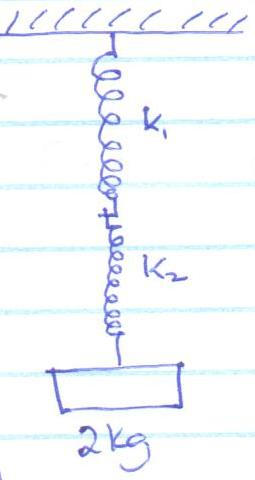 K₁
K₂
2kg